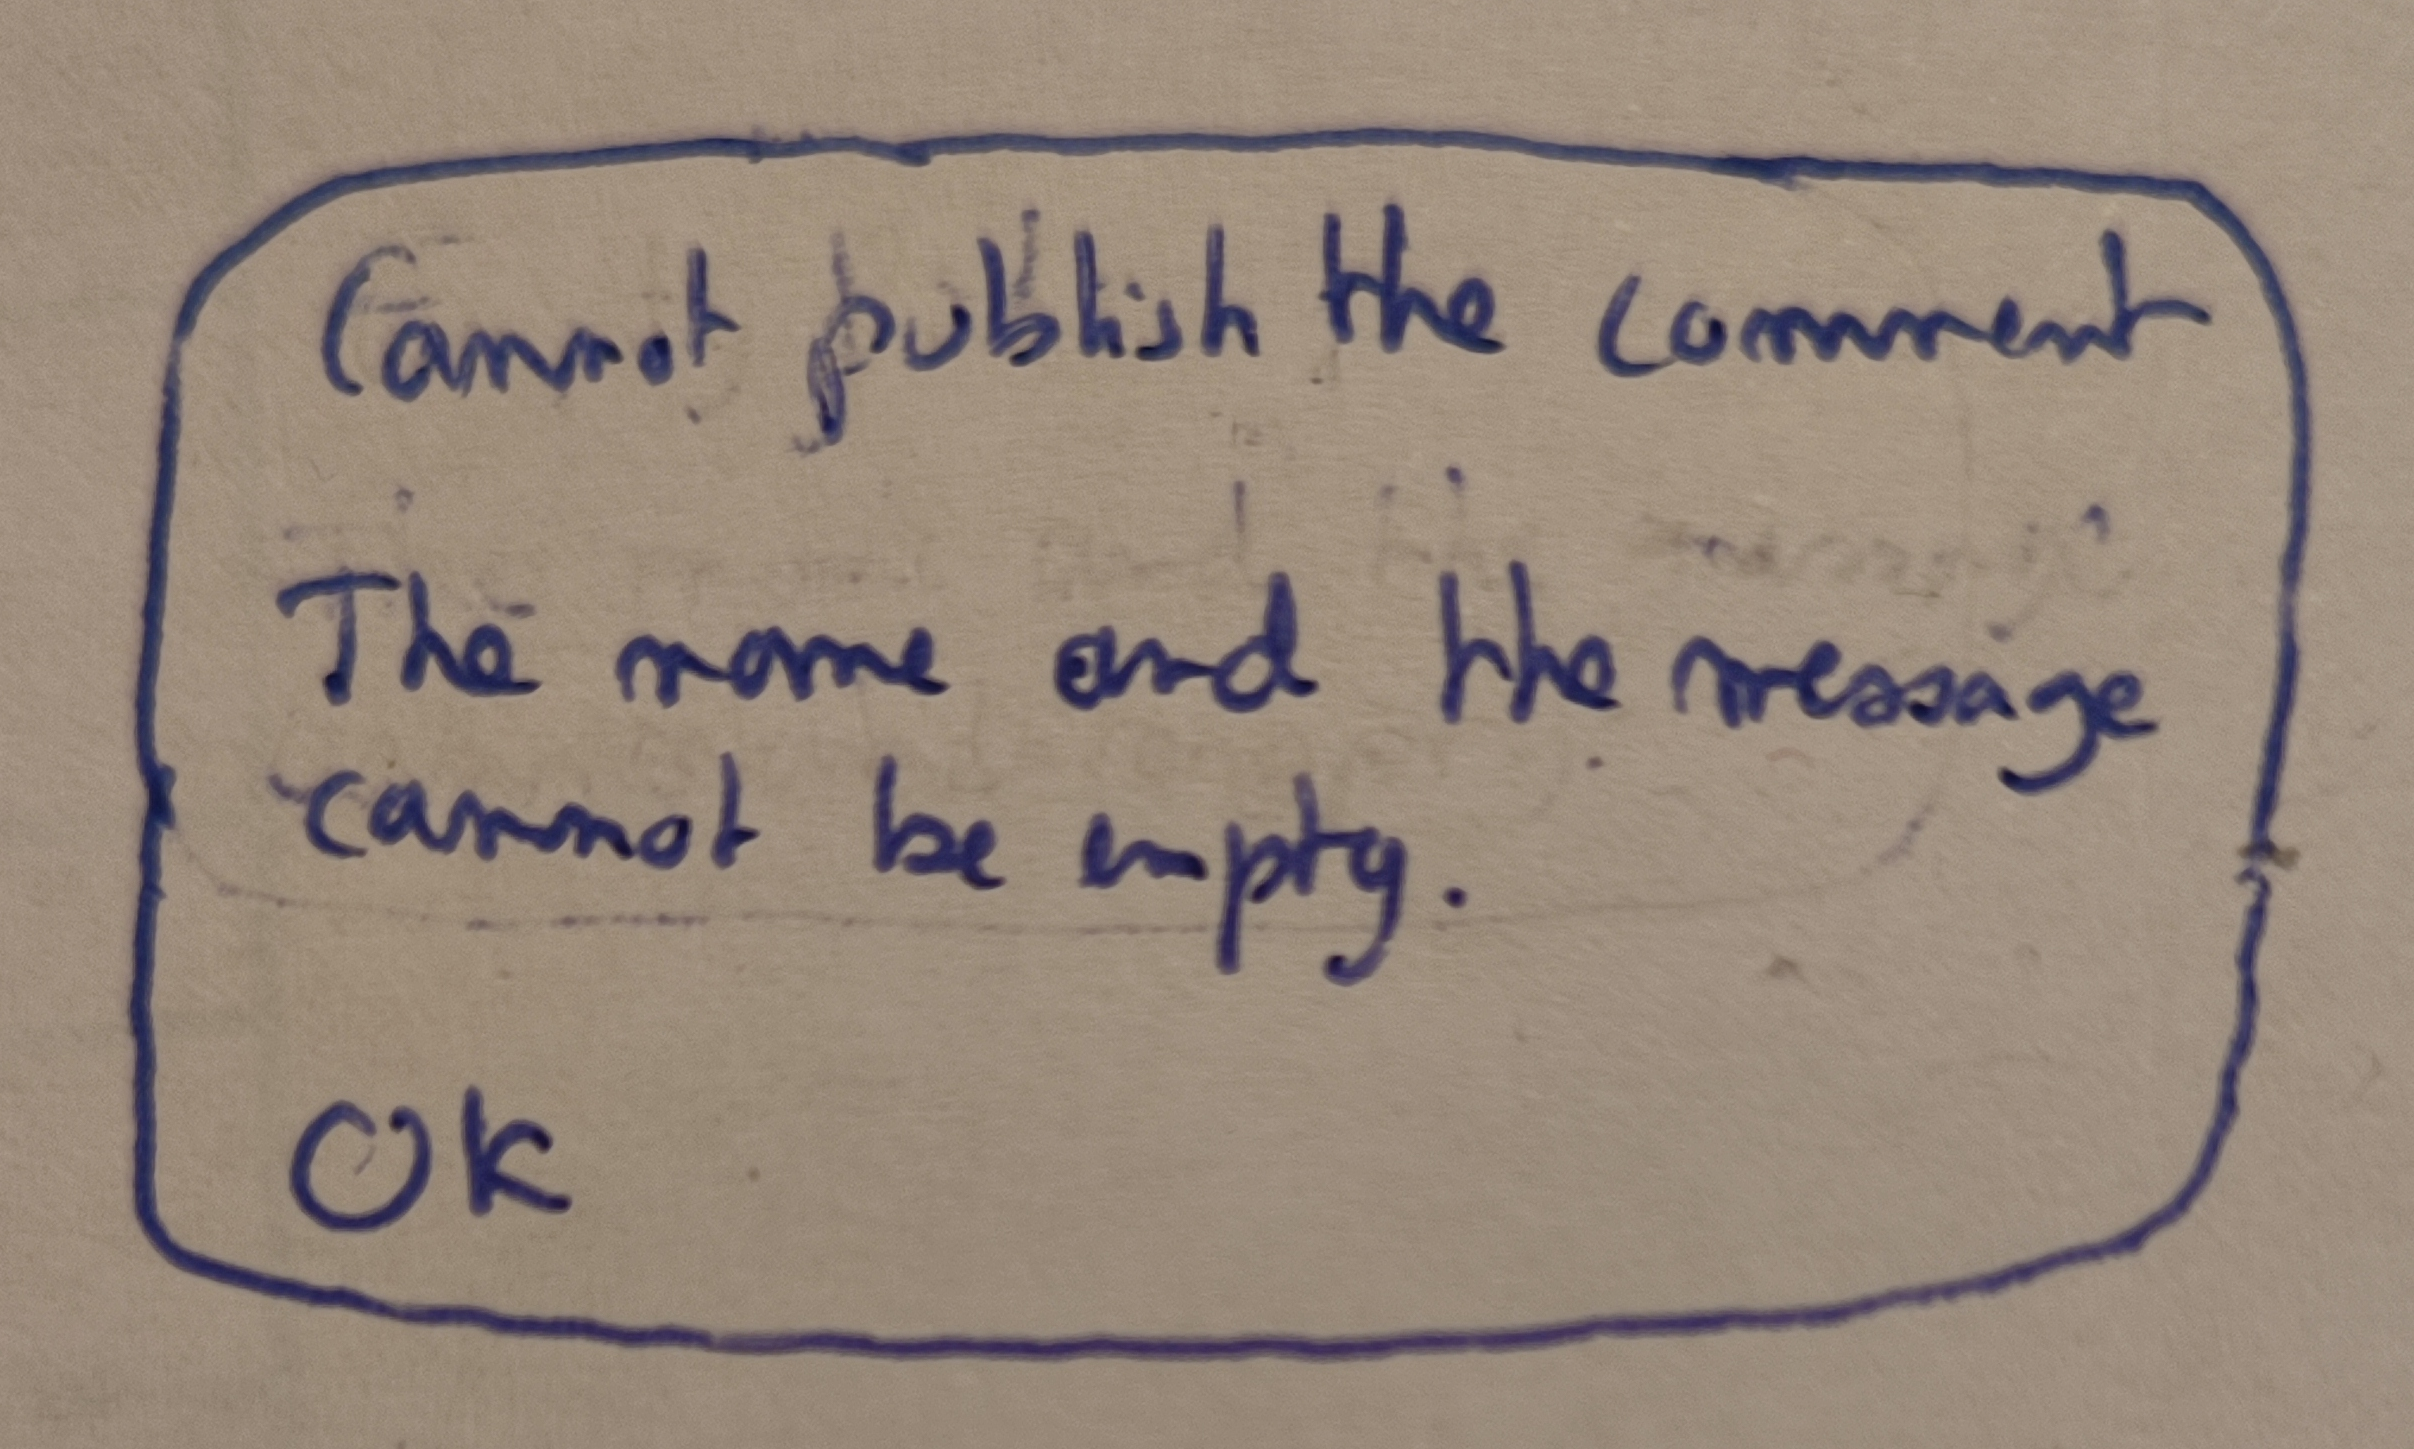 Cannot publish the comment
The name and the message
cannot be empty.
OK